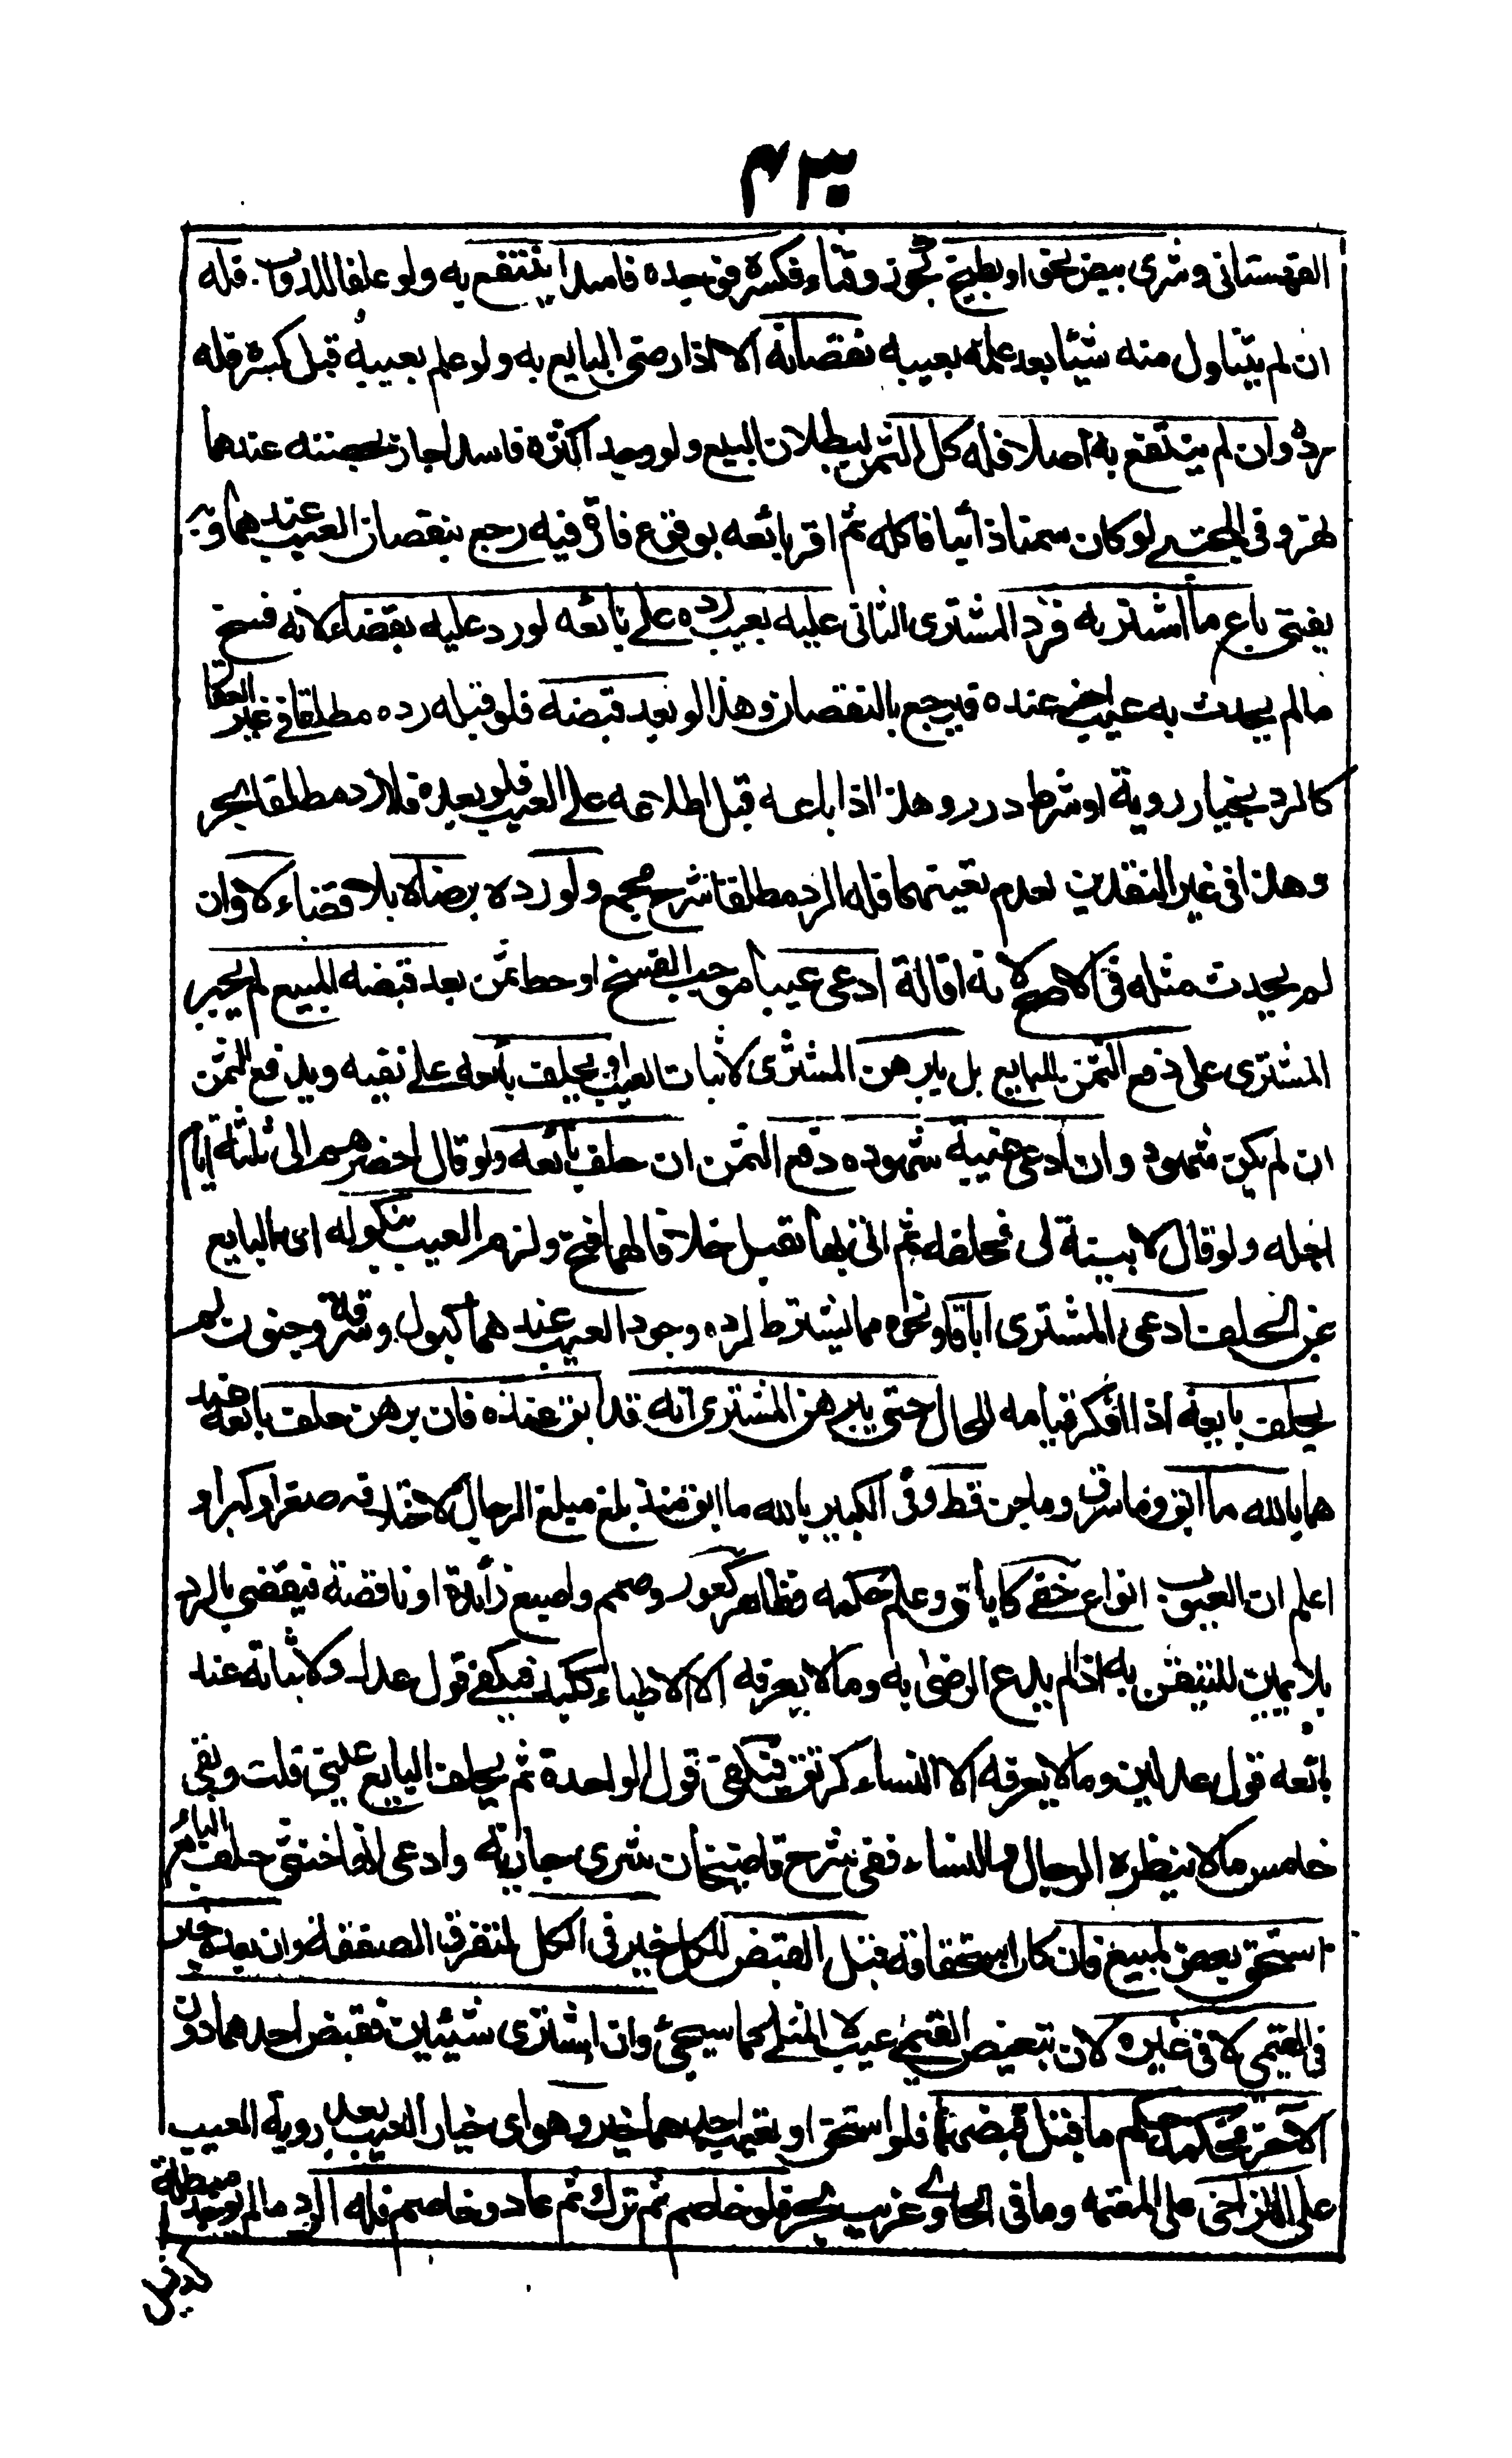 ٤٣٠
القهستانى وشرى بيض نحو او بطيخ كجوز وقثاء فكسره فوجده فاسدا ينتفع به ولو علفا للدواب فله
ان لم يتناول منه شيئا بعد علمه بعيبه نقصانه الا اذا رضى البايع به ولو علم بعيبه قبل كسره فله
رده وان لم ينتفع به اصلا فله كل الثمن لبطلان البيع ولو وجد اكثره فاسدا جاز بحصته عندهما
نهر وفى المجتبى لو كان سمنا ذائبا فاكله ثم اقر بائعه بوقوع فارة فيه رجع بنقصان العيب عندهما وبه
يفتى باع ما اشتريه فرد المشترى الثانى عليه بعيب رده على بائعه لو رد عليه بقضاء لانه فسخ
مالم يحدث به عيب اخر عنده فيرجع بالنقصان وهذا لو بعد قبضه فلو قبله رده مطلقا فى غير العقار
كالرد بخيار روية او شرط درر وهذا اذا باعه قبل اطلاعه على العيب فلو بعده فلا رد مطلقا بحر
وهذا فى غير النقدين لعدم تعينهما فله الرد مطلقا شرح مجمع ولو رده برضاه بلا قضاء لا وان
لم يحدث مثله فى الاصح لانه اقالة ادعى عيبا موجب الفسخ او حط ثمن بعد قبضه المبيع لم يجبر
المشترى على دفع الثمن للبايع بل يبرهن المشترى لاثبات العيب او يحلف بائعه على نفيه ويدفع الثمن
ان لم يكن شهود وان ادعى غيبة شهوده دفع الثمن ان حلف بائعه ولو قال احضرهم الى ثلثة ايام
اجله ولو قال لا بينة لى فحلفه ثم اتى بها تقبل خلافا لهما فتح ولزم العيب بنكوله اى البايع
عن الحلف ادعى المشترى اباقا ونحوه مما يشترط لرده وجود العيب عندهما كبول وسرقة وجنون لم
يحلف بايعه اذا انكر قيامه للحال حتى يبرهن المشترى انه قد ابق عنده فان برهن حلف بائعه عند
هما بالله ما ابق وما سرق وما جن قط وفى الكبير بالله ما ابق منذ بلغ مبلغ الرجال لاختلافه صغرا وكبرا و
اعلم ان العيوب انواع خفى كاباق وعلم حكمه وظاهر كعور وصمم واصبع زائدة او ناقصة فيقضى بالرد
بلا يمين للتيقن به اذا لم يدع الرضى به وما لا يعرفه الا الاطباء ككبد فيكفى قول عدل ولاثباته عند
بائعه قول عدلين وما لا يعرفه الا النساء كرتق فيكفى قول الواحدة ثم يحلف البايع عينى قلت وبقى
خامس ما لا ينظره الرجال والنساء ففى شرح قاضيخان شرى جارية وادعى انها خنثى حلف البائع
استحق بعض المبيع فان كان استحقاقه قبل القبض للكل خير فى الكل لتفرق الصفقة وان بعده خير
فى القيمى لا فى غيره لان تبعيض القيمى عيب لا المثلى كما سيجئ وان اشترى شيئين فقبض احدهما دون
الاخر فحكمه حكم ما قبل قبضهما فلو استحق او تعيب احدهما خير وهو اى خيار العيب بعد روية العيب
على التراخى على المعتمد وما فى الحاوى غريب بحر فلو خاصم ثم ترك ثم عاد وخاصم فله الرد مالم يوجد مبطله